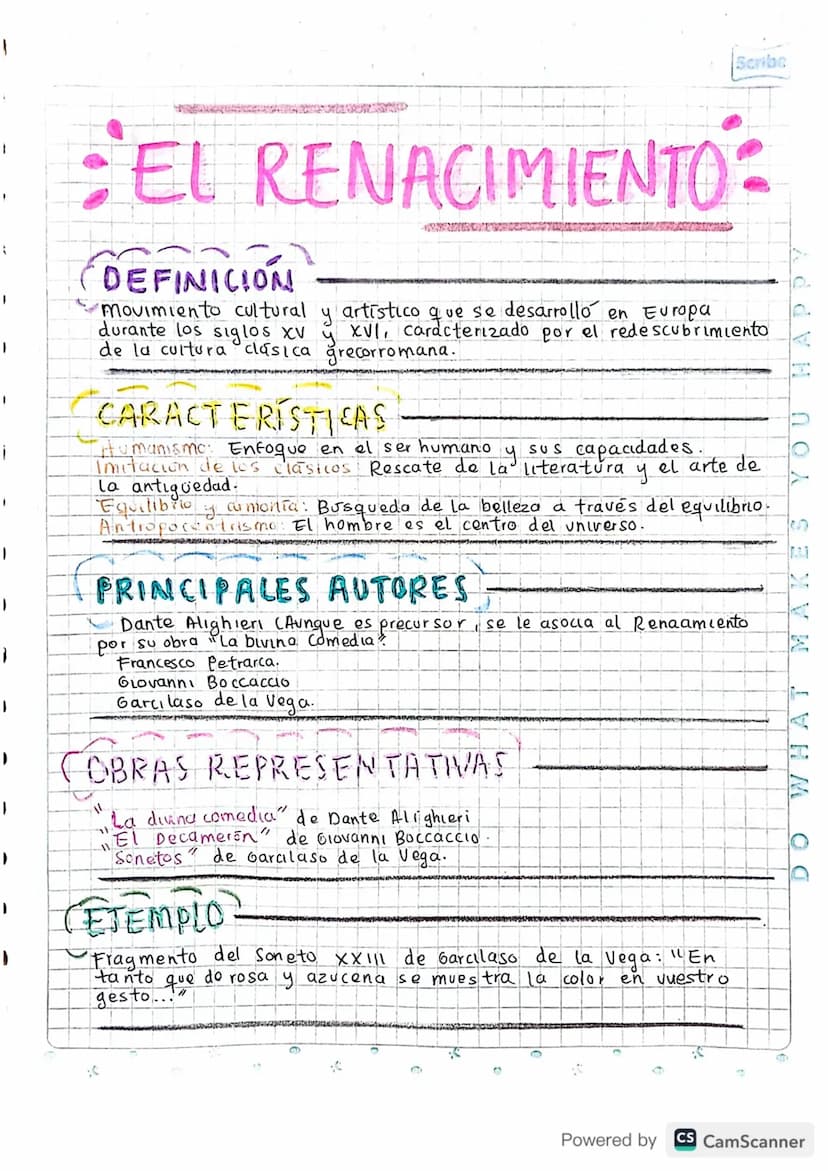 Scribe
EL RENACIMIENTO
DEFINICIÓN
Movimiento cultural y artístico que se desarrolló en Europa
durante los siglos XV y XVI, caracterizado por el redescubrimiento
de la cultura clásica grecorromana.
CARACTERÍSTICAS
Humanismo: Enfoque en el ser humano y sus capacidades.
Imitación de los clásicos: Rescate de la literatura y el arte de
la antigüedad.
Equilibrio y armonía: Búsqueda de la belleza a través del equilibrio.
Antropocentrismo: El hombre es el centro del universo.
PRINCIPALES AUTORES
Dante Alighieri (Aunque es precursor, se le asocia al Renacimiento
por su obra "La Divina Comedia".
Francesco Petrarca.
Giovanni Boccaccio
Garcilaso de la Vega.
OBRAS REPRESENTATIVAS
"La divina comedia" de Dante Alighieri
"El Decamerón" de Giovanni Boccaccio.
"Sonetos" de Garcilaso de la Vega.
EJEMPLO
Fragmento del Soneto XXIII de Garcilaso de la Vega: "En
tanto que de rosa y azucena se muestra la color en vuestro
gesto..."
DO WHAT MAKES YOU HAPPY
Powered by CS CamScanner